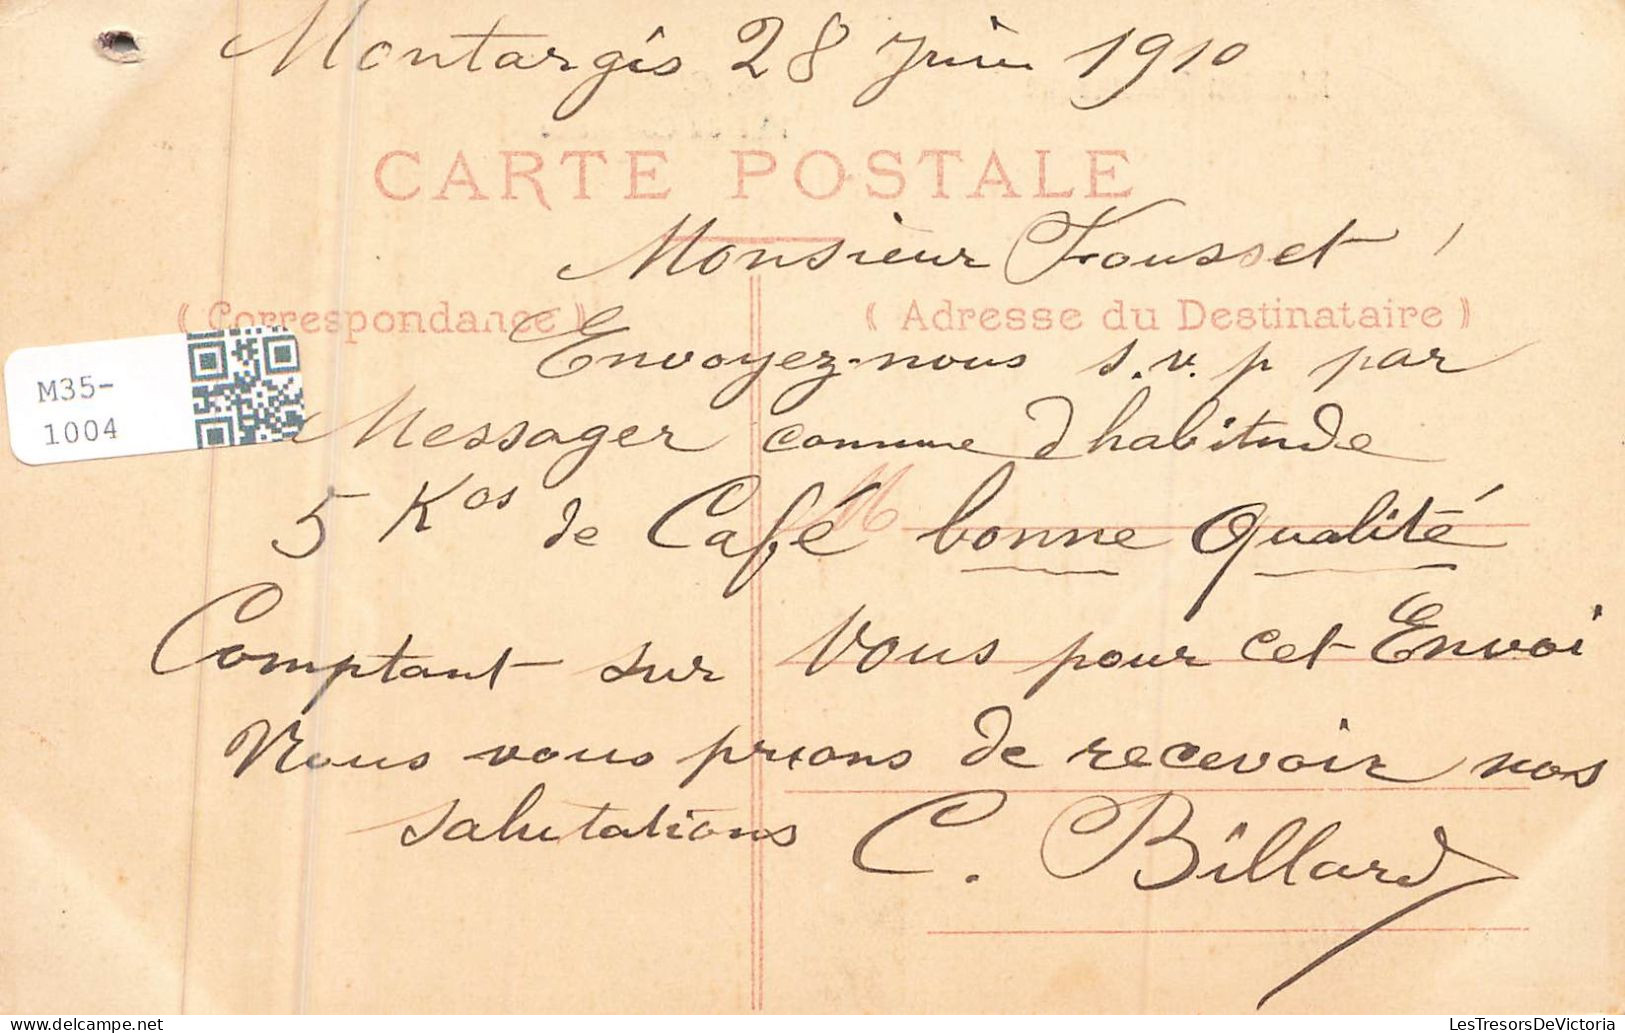 Montargis 28 Juin 1910
CARTE POSTALE
Monsieur Fousset
( Correspondance )
( Adresse du Destinataire )
Envoyez-nous s.v.p par
M35-
1004
Messager comme d'habitude
5 Kos de Café bonne Qualité
M
Comptant sur Vous pour cet Envoi
Nous vous prions de recevoir nos
salutations C. Billard
LesTresorsDeVictoria